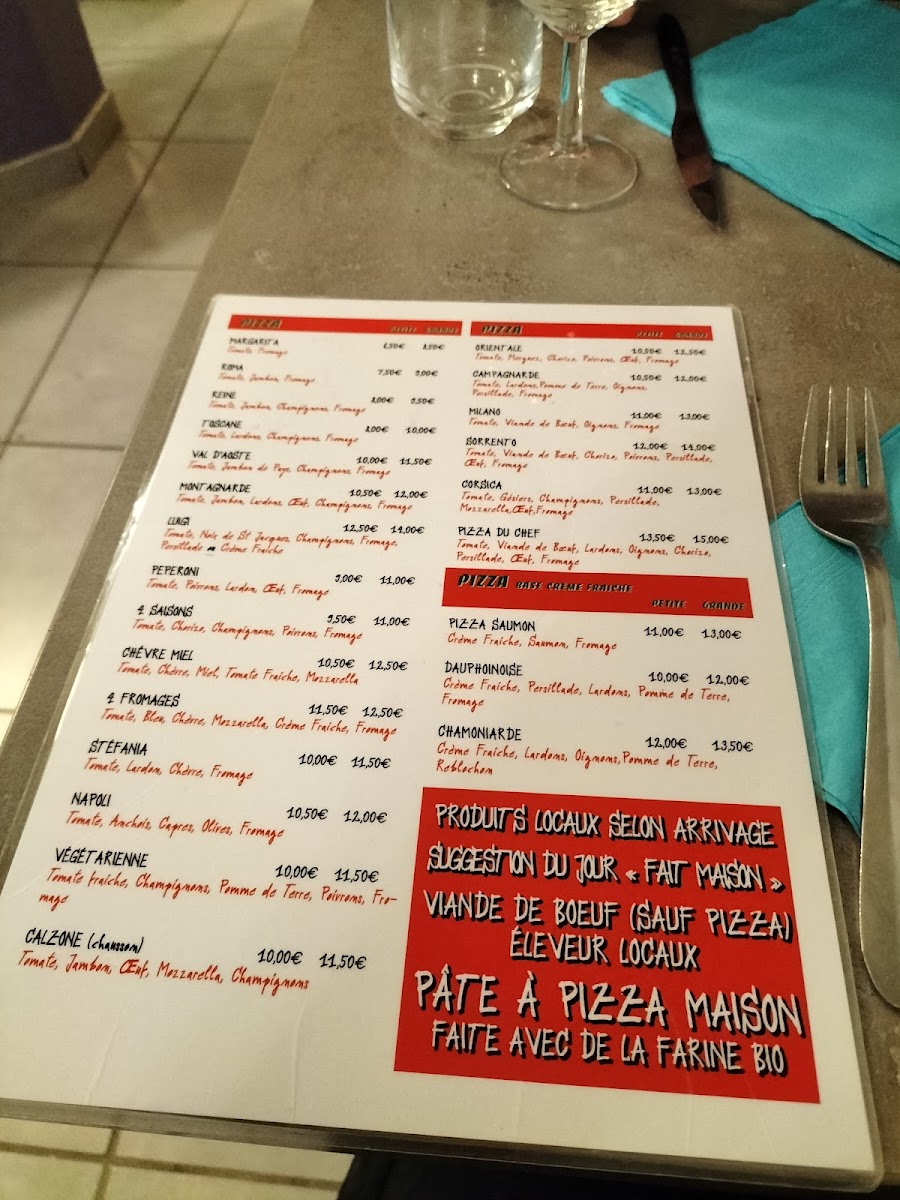 PIZZA PETITE GRANDE
MARGARITA 6,50€ 8,50€
Tomate, Fromage
ROMA 7,50€ 9,00€
Tomate, Jambon, Fromage
REINE 8,00€ 9,50€
Tomate, Jambon, Champignons, Fromage
TOSCANE 8,00€ 10,00€
Tomate, Lardons, Champignons, Fromage
VAL D'AOSTE 10,00€ 11,50€
Tomate, Jambon de Pays, Champignons, Fromage
MONTAGNARDE 10,50€ 12,00€
Tomate, Jambon, Lardons, Œuf, Champignons, Fromage
LUIGI 12,50€ 14,00€
Tomate, Noix de St Jacques, Champignons, Fromage,
Persillade ou Crème Fraîche
PEPERONI 9,00€ 11,00€
Tomate, Poivrons, Lardon, Œuf, Fromage
4 SAISONS 9,50€ 11,00€
Tomate, Chorizo, Champignons, Poivrons, Fromage
CHÈVRE MIEL 10,50€ 12,50€
Tomate, Chèvre, Miel, Tomate Fraiche, Mozzarella
4 FROMAGES 11,50€ 12,50€
Tomate, Bleu, Chèvre, Mozzarella, Crème Fraîche, Fromage
STÉFANIA 10,00€ 11,50€
Tomate, Lardon, Chèvre, Fromage
NAPOLI 10,50€ 12,00€
Tomate, Anchois, Capres, Olives, Fromage
VÉGÉTARIENNE 10,00€ 11,50€
Tomate fraiche, Champignons, Pomme de Terre, Poivrons, Fro-
mage
CALZONE (chausson) 10,00€ 11,50€
Tomate, Jambon, Œuf, Mozzarella, Champignons
PIZZA PETITE GRANDE
ORIENTALE 10,50€ 12,50€
Tomate, Merguez, Chorizo, Poivrons, Œuf, Fromage
CAMPAGNARDE 10,50€ 12,00€
Tomate, Lardons, Pomme de Terre, Oignons,
Persillade, Fromage
MILANO 11,00€ 13,00€
Tomate, Viande de Bœuf, Oignons, Fromage
SORRENTO 12,00€ 14,00€
Tomate, Viande de Bœuf, Chorizo, Poivrons, Persillade,
Œuf, Fromage
CORSICA 11,00€ 13,00€
Tomate, Gésiers, Champignons, Persillade,
Mozzarella,Œuf,Fromage
PIZZA DU CHEF 13,50€ 15,00€
Tomate, Viande de Bœuf, Lardons, Oignons, Chorizo,
Persillade, Œuf, Fromage
PIZZA BASE CRÈME FRAICHE
PETITE GRANDE
PIZZA SAUMON 11,00€ 13,00€
Crème Fraiche, Saumon, Fromage
DAUPHOINOISE 10,00€ 12,00€
Crème Fraiche, Persillade, Lardons, Pomme de Terre,
Fromage
CHAMONIARDE 12,00€ 13,50€
Crème Fraiche, Lardons, Oignons,Pomme de Terre,
Reblochon
PRODUITS LOCAUX SELON ARRIVAGE
SUGGESTION DU JOUR « FAIT MAISON »
VIANDE DE BOEUF (SAUF PIZZA)
ÉLEVEUR LOCAUX
PÂTE À PIZZA MAISON
FAITE AVEC DE LA FARINE BIO